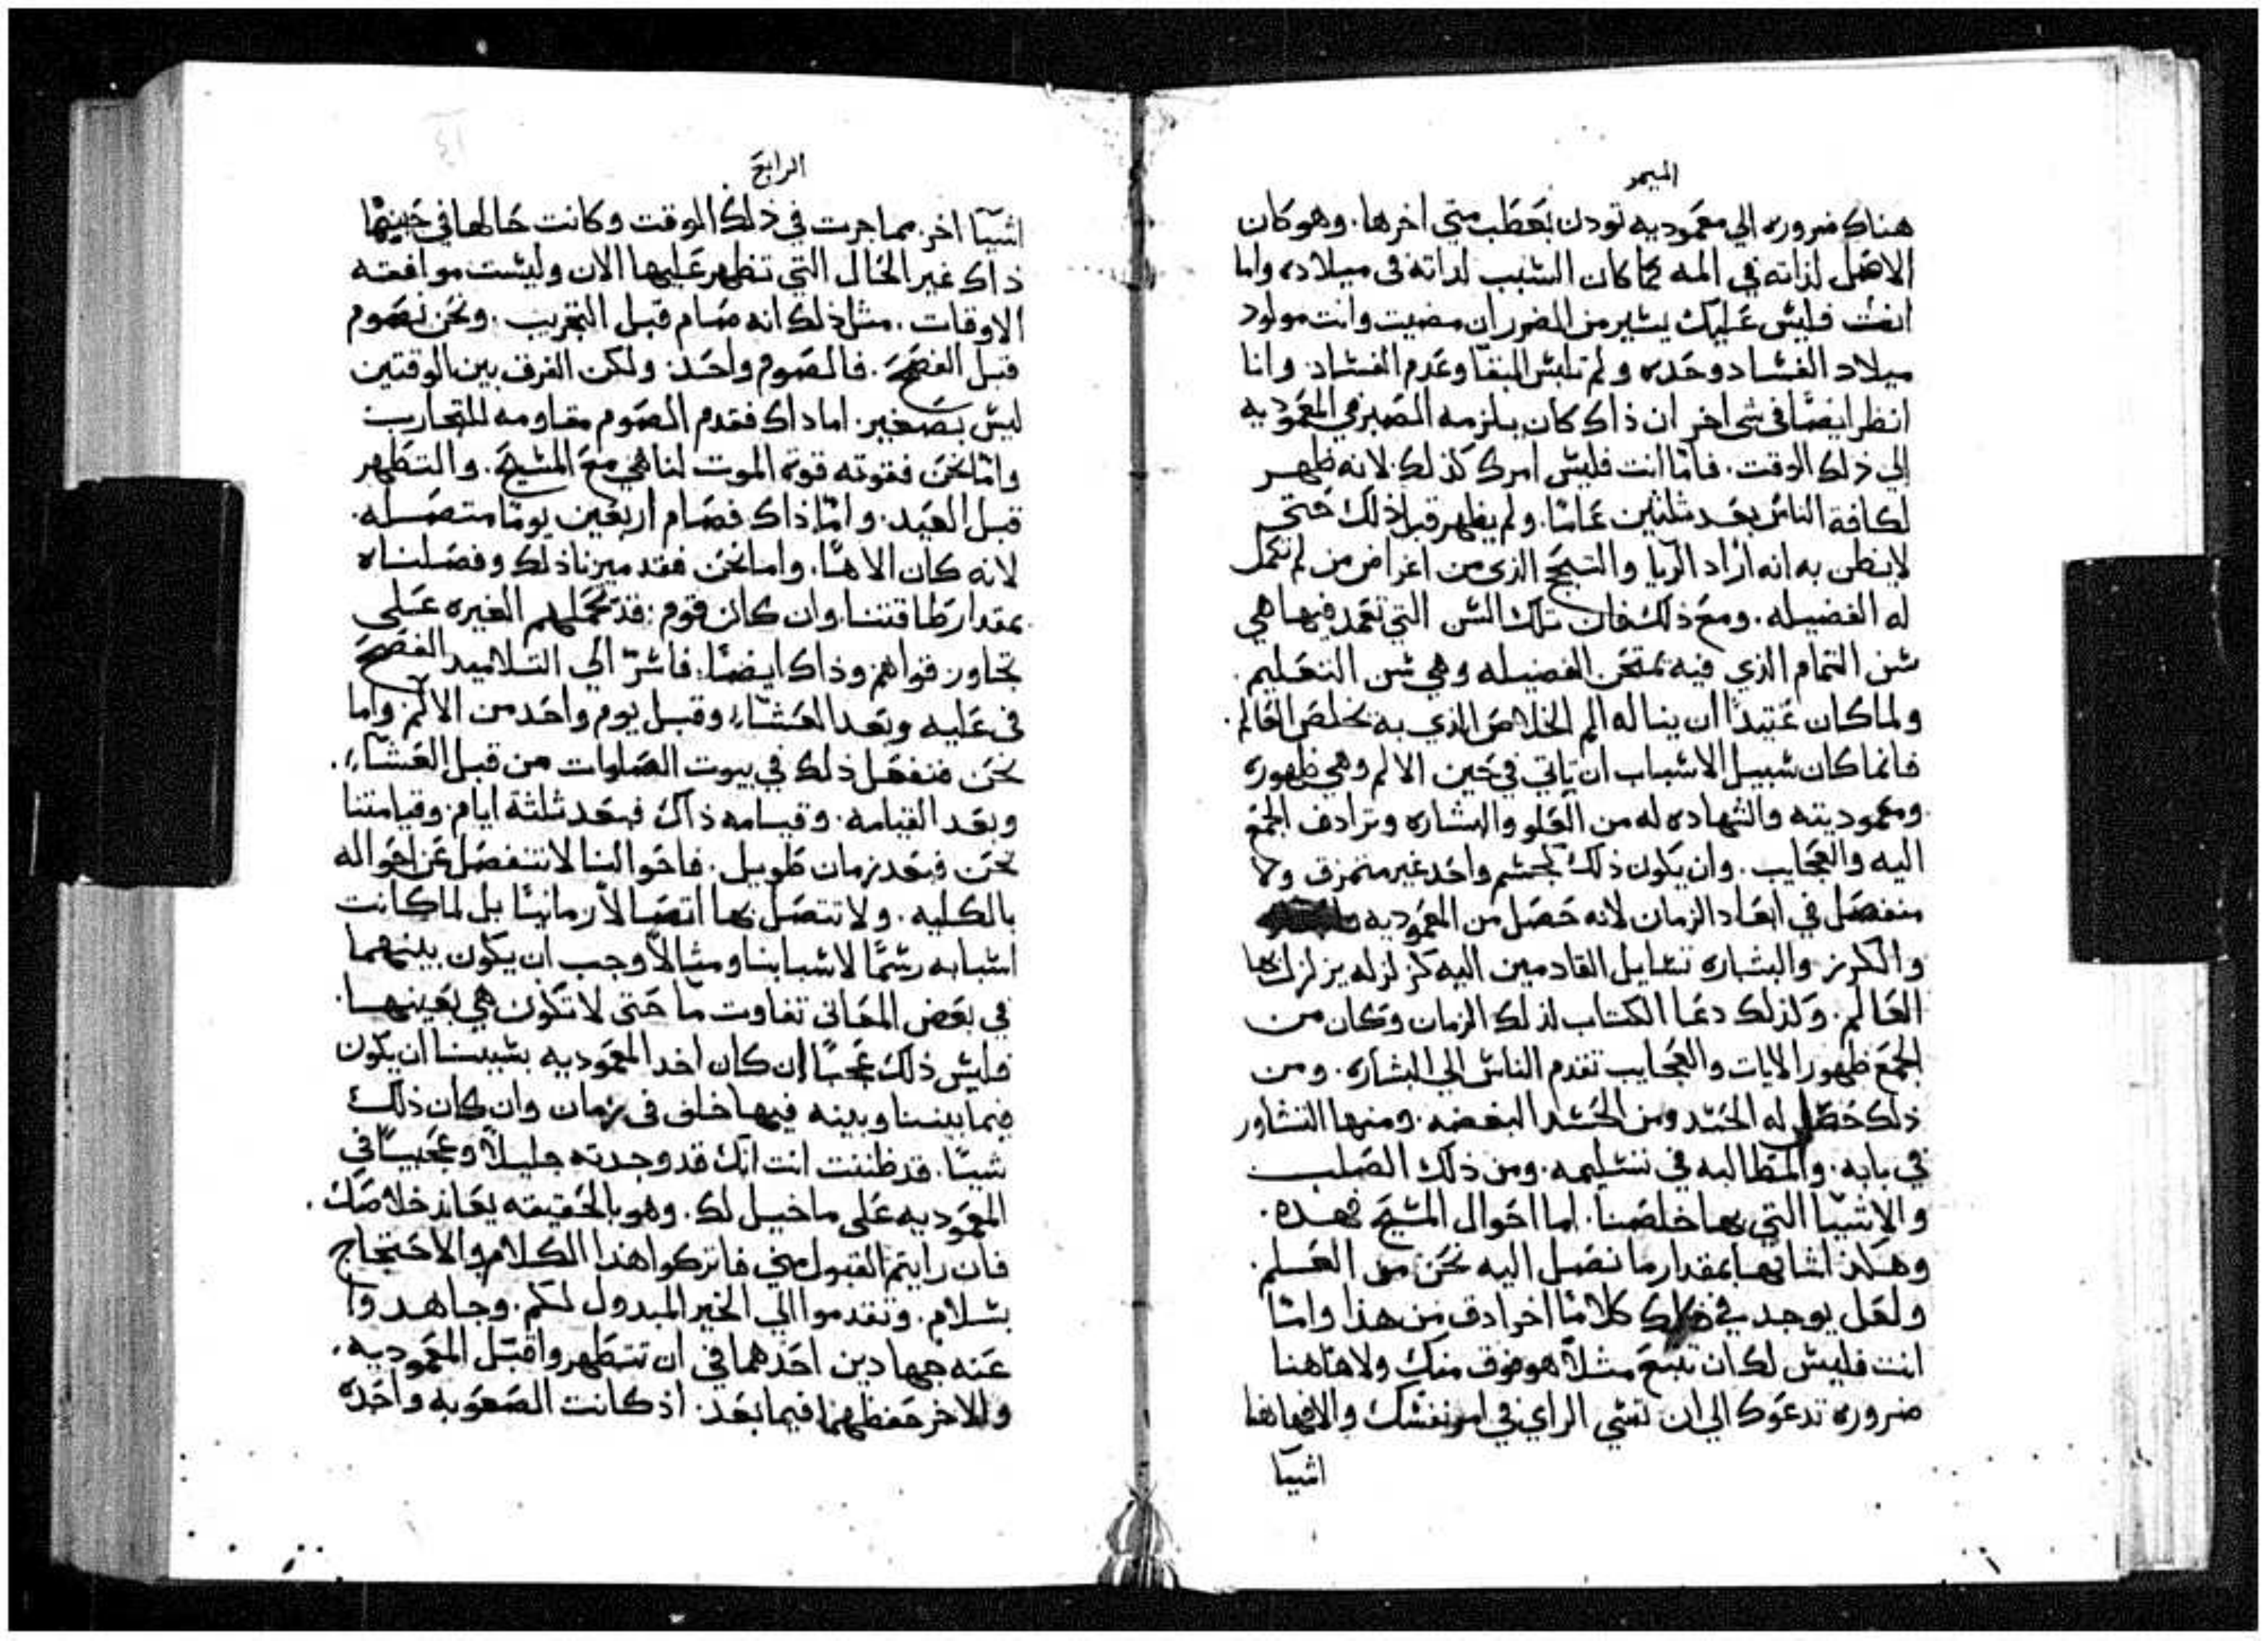 الميمر
هناك ضروره الي معموديه تودن بعطب متي اخرها. وهو كان
الاصل لذاته في المه كما كان السبب لداته في ميلاده واما
انت فليس عليك يسير من الضرر ان مضيت وانت مولود
ميلاد الفساد وحده ولم تلبس البقا وعدم الفساد: وانا
انظر ايضًا في شي اخر ان ذاك كان يلزمه الصبر في المعموديه
الي ذلك الوقت. فامّا انت فليس امرك كذلك. لانه ظهر
لكافة الناس بعد ثلثين عامًا. ولم يظهر قبل ذلك حتى
لا يظن به انه اراد الريا والتبجح الذي من اغراض من لم تكمل
له الفضيله. ومع ذلك فان تلك السن التي تعمد فيها هي
سن التمام الذي فيه تمتحن الفضيله وهي سن التعليم.
ولما كان عتيدًا ان يناله الم الخلاص الذي به يخلص العالم.
فانما كان سبيل الاسباب ان تاتي في حين الالم وهي ظهوره
ومعموديته والشهاده له من العلو والبشاره وترادف الجمع
اليه والعجايب. وان يكون ذلك كجسم واحد غير متمزق ولا
منفصل في ابعاد الزمان لانه حصل من المعموديه
والكرز والبشاره تسايل القادمين اليه كزلزله يزلزل بها
العالم. ولذلك دعا الكتاب لذلك الزمان وكان من
الجمع ظهور الايات والعجايب تقدم الناس الي البشاره. ومن
ذلك حصل له الحسد ومن الحسد البغضه. ومنها التشاور
في بابه. والمطالبه في تسليمه. ومن ذلك الصلب
والاشيا التي بها خلصنا. اما احوال المسيح فهده.
وهكذا اسبابها بمقدار ما نصل اليه نحن من العلم.
ولعل يوجد في ذلك كلامًا اخر ادق من هذا وامّا
انت فليس لك ان تتبع مثلاً هو فوق منك ولا هاهنا
ضروره تدعوك الي ان تسي الراي في امر نفسك والا فهاهنا
اشيا
الرابع
اشيا اخر مما جرت في ذلك الوقت وكانت حالها في حينها
ذاك غير الحال التي تظهر عليها الان وليست موافقته
الاوقات. مثل ذلك انه صام قبل التجريب. ونحن نصوم
قبل الفصح. فالصوم واحد: ولكن الفرق بين الوقتين
ليس بصغير. اما داك فقدم الصوم مقاومه للتجارب
وامّا نحن فقوته قوة الموت لنا هي مع المسيح. والتطهر
قبل العيد. وامّا ذاك فصام اربعين يومًا متصله.
لانه كان الاهًا. واما نحن فقد ميزنا ذلك وفصلناه
بمقدار طاقتنا وان كان قوم قد تحملهم الغيره علي
تجاوز قواهم وذاك ايضًا. فاسرّ الي التلاميد الفصح
في عليه وبعد العشاء وقبل يوم واحد من الالم. واما
نحن فنفعل ذلك في بيوت الصلوات من قبل العشاء.
وبعد القيامه. وقيامه ذاك فبعد ثلثة ايام. وقيامتنا
نحن فبعد زمان طويل. فاحوالنا لا تنفصل عن احواله
بالكليه. ولا تتصل بها اتصالاً زمانيًا بل لما كانت
اسبابه رسمًا لاسبابنا ومثالاً وجب ان يكون بينهما
في بعض المعاني تفاوت ما حتى لا تكون هي بعينها.
فليس ذلك عجبًا ان كان اخد المعموديه بسببنا ان يكون
فيما بيننا وبينه فيها خلف في زمان وان كان ذلك
شيًا. قد ظننت انت انك قد وجدته جليلاً وعجيبًا في
المعموديه على ما خيل لك. وهو بالحقيقه يعاند خلاصك.
فان رايتم القبول مني فاتركوا هذا الكلام والاحتجاج
بسلام. وتقدموا الي الخير المبدول لكم. وجاهدوا
عنه جهادين احدهما في ان تتطهر واقبل المعموديه.
والاخر حفظهما فيما بعد. اذ كانت الصعوبه واحده